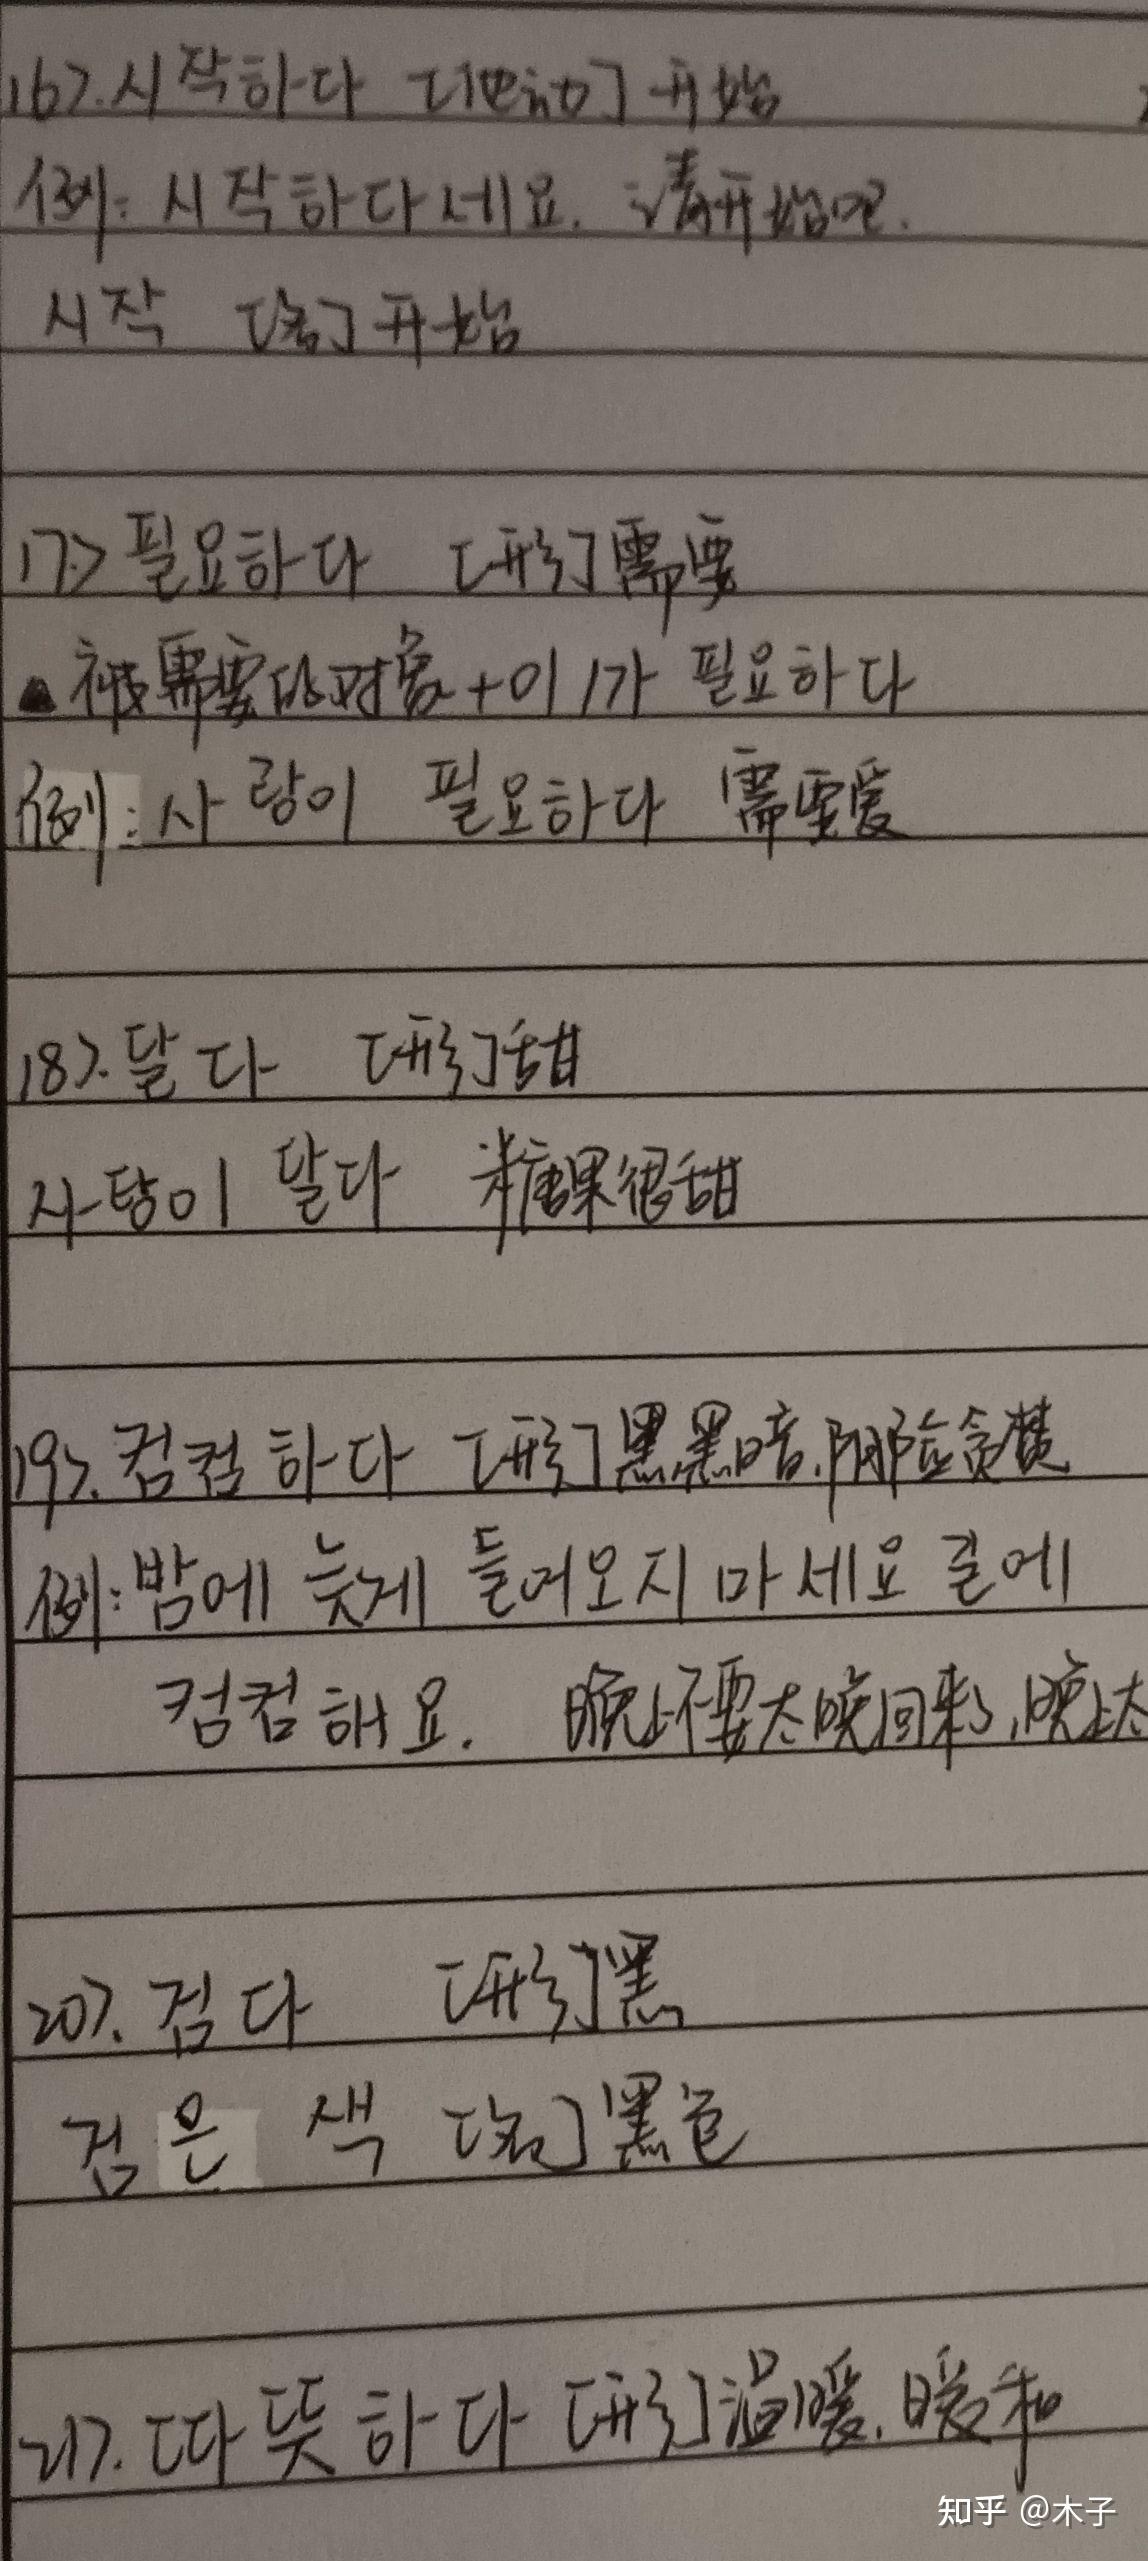 16>.시작하다 [他动]开始
例: 시작하다세요. 请开始吧.
시작 [名]开始
17>필요하다 [形]需要
▲被需要的对象+이/가 필요하다
例:사랑이 필요하다 需要爱
18>.달다 [形]甜
사탕이 달다 糖果很甜
19>.컴컴하다 [形]黑,黑暗,阴险贪婪
例:밤에 늦게 들어오지 마세요 길에
컴컴해요. 晚上不要太晚回来了,晚上太
20>.검다 [形]黑
검은 색 [名]黑色
21>.따뜻하다 [形]温暖,暖和
知乎 @木子